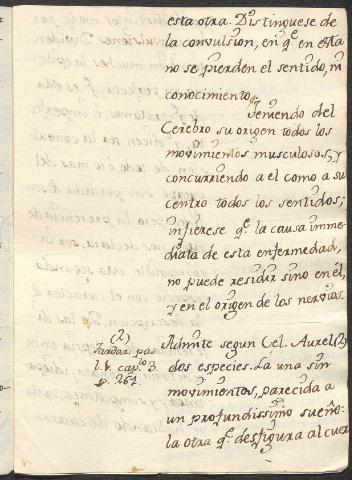 esta otra. Distinguese de
la convulsion, en q.e en esta
no se pierden el sentido, ni
conocimiento.
Teniendo del
Cerebro su origen todos los
movimientos musculosos, y
concurriendo a el como a su
centro todos los sentidos;
infierese q.e la causa imme-
diata de esta enfermedad,
no puede residir sino en él,
y en el origen de los nervios.
Admite segun Cel. Aurel. (2)
dos especies. La una sin
movimientos, parecida a
un profundissimo sueño:
la otra q.e desfigura al cuer
(2)
Tardar. pas
l. 1. cap.o 3.
p. 261.